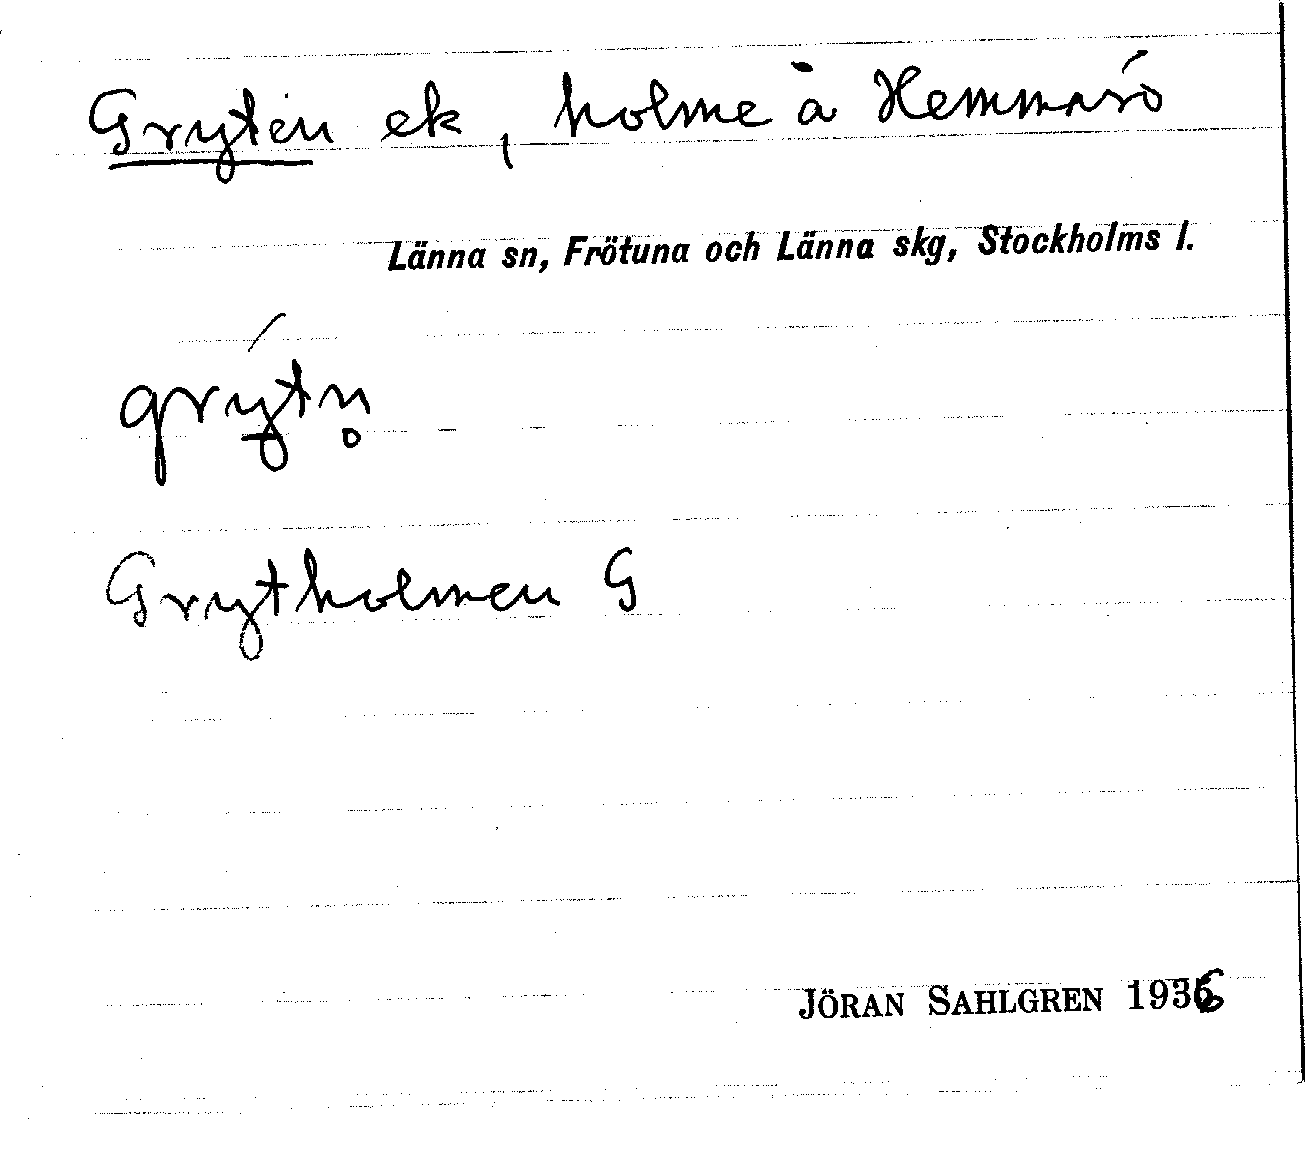 Gryten ek, holme å Hemmarö
Länna sn, Frötuna och Länna skg, Stockholms l.
grýtn̥
Grytholmen G
JÖRAN SAHLGREN 1936